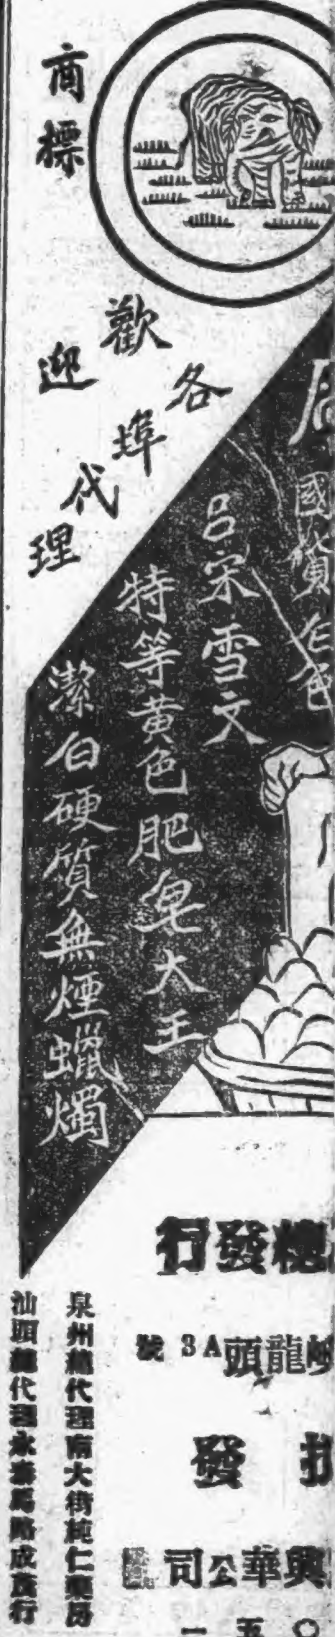 商標
歡迎
各埠代理
國貨白色
呂宋雪文
特等黃色肥皂大王
潔白硬質無煙蠟燭
總發行
龍頭A3號
發
興華公司
〇五一
泉州總代理南大街純仁藥房
汕頭總代理永泰馬路成茂行